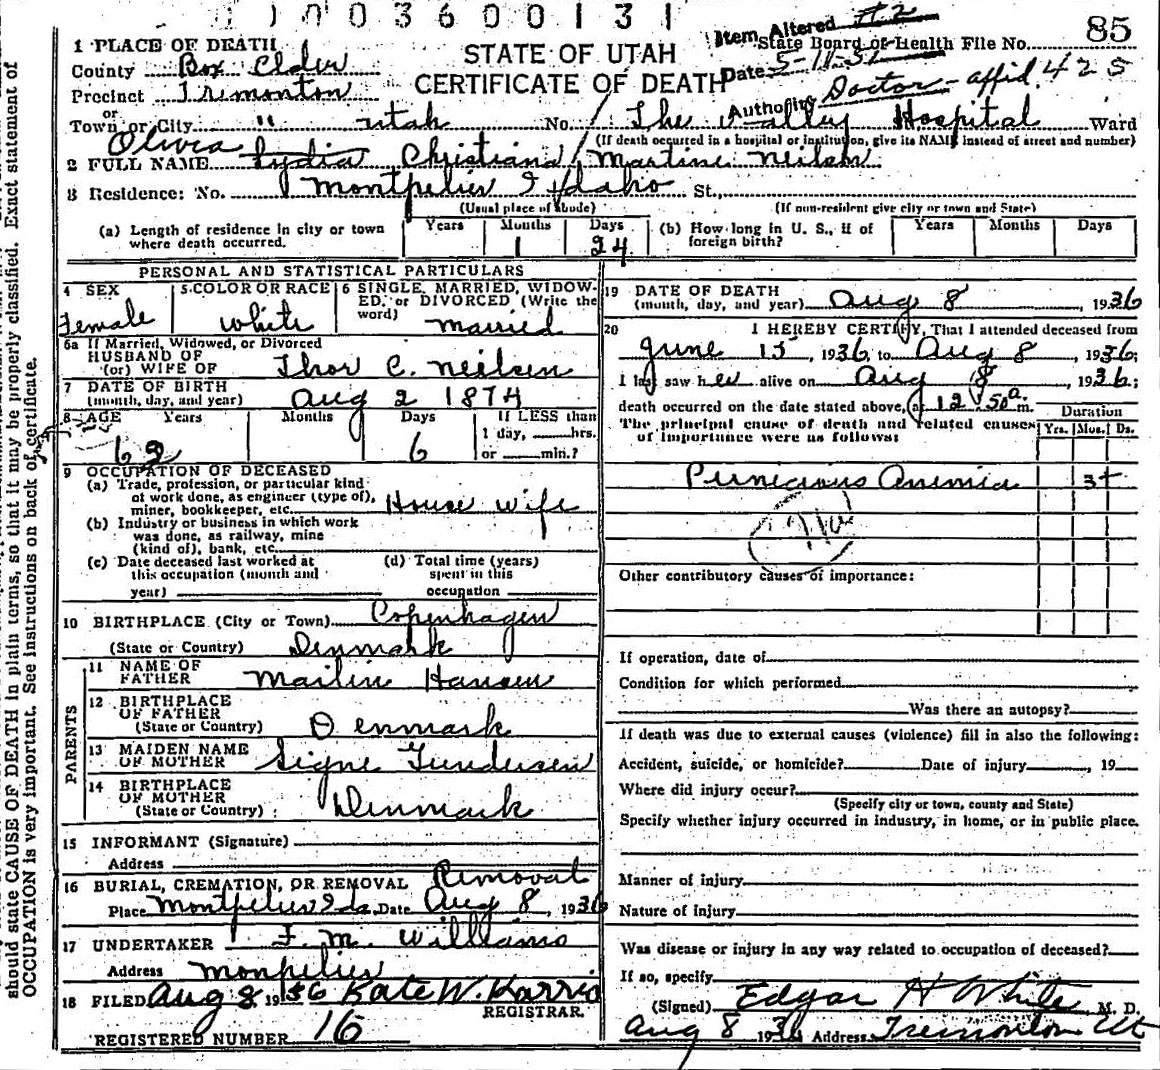 1 0 0 3 6 0 0 1 3 1
Item Altered #2
85
1 PLACE OF DEATH
STATE OF UTAH
State Board of Health File No.
County Box Elder
CERTIFICATE OF DEATH
Date 5-11-51
Precinct Tremonton
Authority Doctor - affid. 425
or
Town or City " Utah No. The Valley Hospital Ward
(If death occurred in a hospital or institution, give its NAME instead of street and number)
Olivia
2 FULL NAME Lydia Christiana Martine Neilsen
3 Residence: No. Montpelier Idaho St.,
(Usual place of abode)
(If non-resident give city or town and State)
(a) Length of residence in city or town where death occurred.
Years Months Days
1 24
(b) How long in U. S., if of foreign birth?
Years Months Days
PERSONAL AND STATISTICAL PARTICULARS
4 SEX
Female
5 COLOR OR RACE
White
6 SINGLE, MARRIED, WIDOW-
ED, or DIVORCED (Write the
word)
Married
6a If Married, Widowed, or Divorced
HUSBAND OF
(or) WIFE OF Thor C. Neilsen
7 DATE OF BIRTH
(month, day, and year) Aug 2 1874
8 AGE Years Months Days
If LESS than
1 day, hrs.
or min.?
62 6
9 OCCUPATION OF DECEASED
(a) Trade, profession, or particular kind
of work done, as engineer (type of),
miner, bookkeeper, etc. House wife
(b) Industry or business in which work
was done, as railway, mine
(kind of), bank, etc.
(c) Date deceased last worked at
this occupation (month and
year)
(d) Total time (years)
spent in this
occupation
10 BIRTHPLACE (City or Town) Copenhagen
(State or Country) Denmark
PARENTS
11 NAME OF
FATHER Hansen
12 BIRTHPLACE
OF FATHER
(State or Country) Denmark
13 MAIDEN NAME
OF MOTHER Signe
14 BIRTHPLACE
OF MOTHER
(State or Country) Denmark
15 INFORMANT (Signature)
Address
16 BURIAL, CREMATION, OR REMOVAL Removal
Place Montpelier Ida. Date Aug 8, 1936
17 UNDERTAKER F. M. Williams
Address Monpelier
18 FILED Aug 8 1936 Kate W. Harris
REGISTRAR.
REGISTERED NUMBER 16
19 DATE OF DEATH
(month, day, and year) Aug 8, 1936
20 I HEREBY CERTIFY, That I attended deceased from
June 15, 1936, to Aug 8, 1936;
I last saw her alive on Aug 8, 1936;
death occurred on the date stated above, at 12:50 a.m.
The principal cause of death and related causes
of importance were as follows:
Duration
Yrs. Mos. Ds.
Pernicious Anemia 3+
Other contributory causes of importance:
If operation, date of
Condition for which performed
Was there an autopsy?
If death was due to external causes (violence) fill in also the following:
Accident, suicide, or homicide? Date of injury, 19
Where did injury occur?
(Specify city or town, county and State)
Specify whether injury occurred in industry, in home, or in public place.
Manner of injury
Nature of injury
Was disease or injury in any way related to occupation of deceased?
If so, specify
(Signed) Edgar H White M. D.
Aug 8 1936 Address Tremonton Ut
should state CAUSE OF DEATH in plain terms, so that it may be properly classified. Exact statement of
OCCUPATION is very important. See instructions on back of certificate.